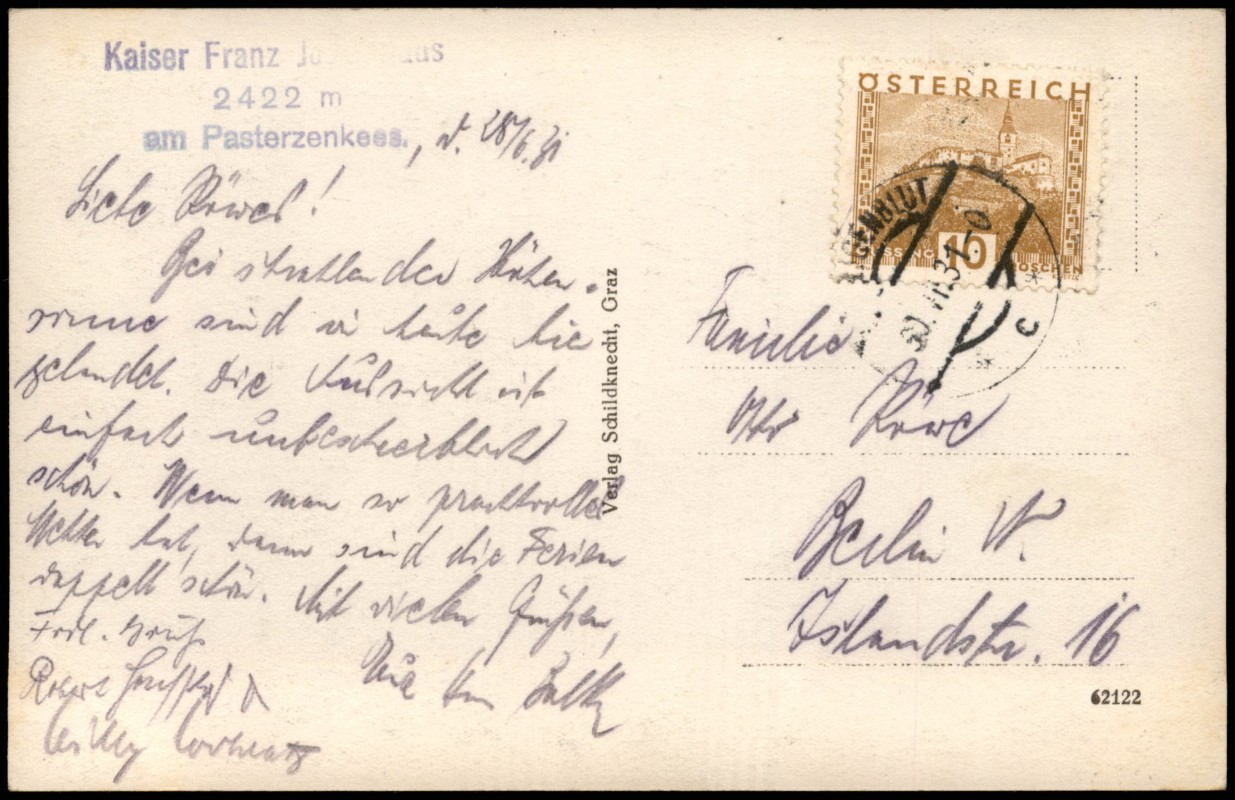 Kaiser Franz
2422 m
am Pasterzenkees.
, d. 28/6.31
Liebe Röwes!
Bei strahlender Höhen-
sonne sind wir heute hier
gelandet. Die Aussicht ist
einfach unbeschreiblich
schön. Wenn man so prachtvolles
Wetter hat, dann sind die Ferien
doppelt schön. Mit vielen Grüßen,
Frdl. Gruß
Robert
Willy
Verlag Schildknecht, Graz
ÖSTERREICH
GÜSSING 10 GROSCHEN
c
Familie
Otto Röwe
Berlin N.
Islandstr. 16
62122